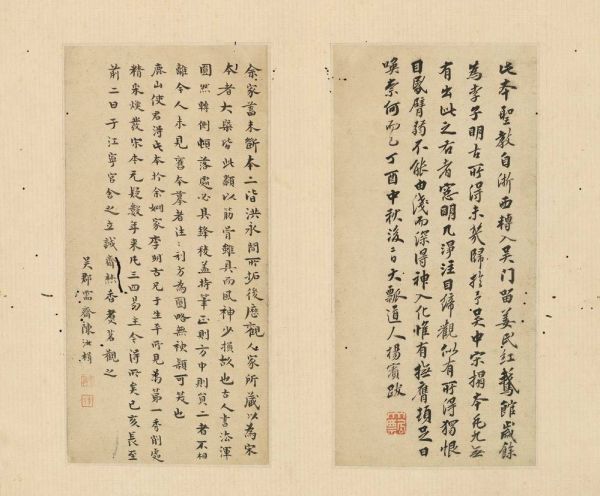 此本聖教自浙西轉入吳門留姜氏紅鵞館歲餘
為李子明古所得未幾歸於予吳中宋搨本
有出此之右者窓明几淨注目締觀似有所得獨恨
目昏臂弱不能由淺而深得神入化惟有撫膺頓足日
喚奈何而已丁酉中秋後二日大瓢道人楊賓跋
余家蓄未斷本二皆洪永間所拓後歷觀人家所藏以為宋
本者大槩皆此類以筋骨雖具而風神少損故也古人書法渾
圓然轉側頓落處必具鋒稜蓋持筆正則方中則員二者不相
離今人未見舊本摹者注注刓方為圓略無稜可笑也
鹿山使君得此本於余姻家李明古兄于生平所見為第一處
精采煥發宋本无疑數年來凡三四易主今得所矣己亥長至
前二日于江寧官舍之立誠齋焚香煮茗觀之
吳郡齋陳汝楫